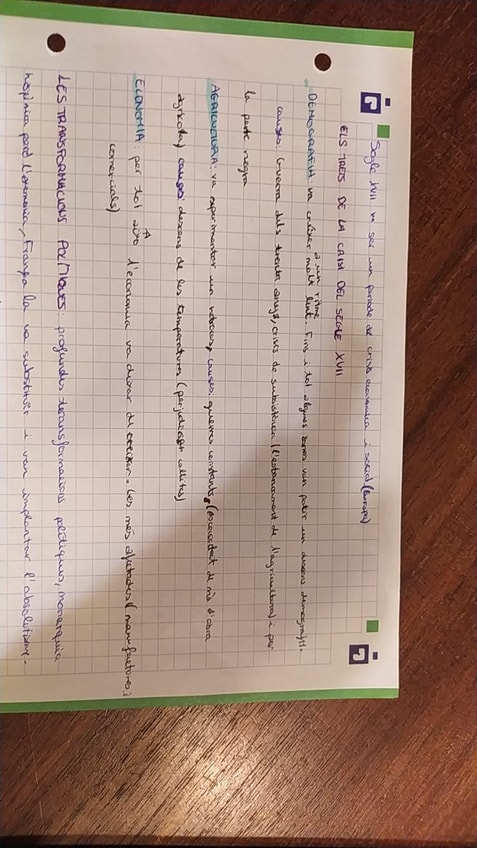 Segle XVII va ser un període de crisis econòmica i social (Europa)
ELS TRETS DE LA CRISI DEL SEGLE XVII
DEMOGRAFIA: va créixer a un ritme molt lent. Fins i tot algunes zones van patir un descens demogràfic.
causes: Guerra dels trenta anys, crisis de subsistència (l'estancament de l'agricultura) i per
la peste negra
AGRICULTURA: va experimentar un retrocés, causes: guerres constants, (escassetat de mà d'obra
agrícola) causes descens de les temperatures (perjudicar collites)
ECONOMIA per tot això l'economia va deixar de créixer. Les més afectades (manufactures i
comercials)
LES TRANSFORMACIONS POLÍTIQUES profundes transformacions polítiques, monarquia
hispània perd l'hegemonia, França la va substituir i van implantar l'absolutisme.